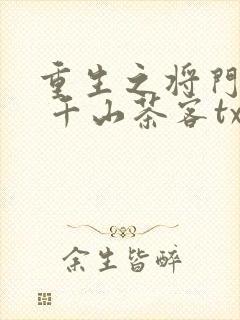 重生之将門
千山茶客tx
余生皆醉